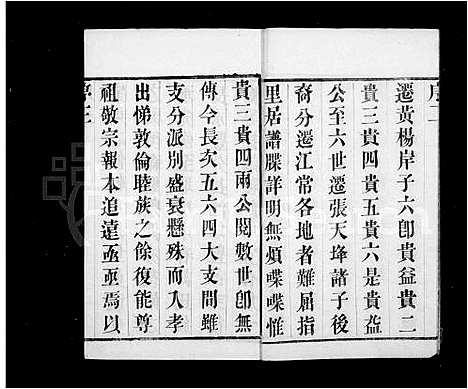 序二
遷黃楊岸子六卽貴益貴二
貴三貴四貴五貴六是貴益
公至六世遷張天埄諸子後
裔分遷江常各地者難屈指
里居譜牒詳明無煩喋喋惟
貴三貴四兩公閱數世卽無
傳今長次五六四大支間雖
支分派別盛衰懸殊而入孝
出悌敦倫睦族之餘復能尊
祖敬宗報本追遠亟亟焉以
序三